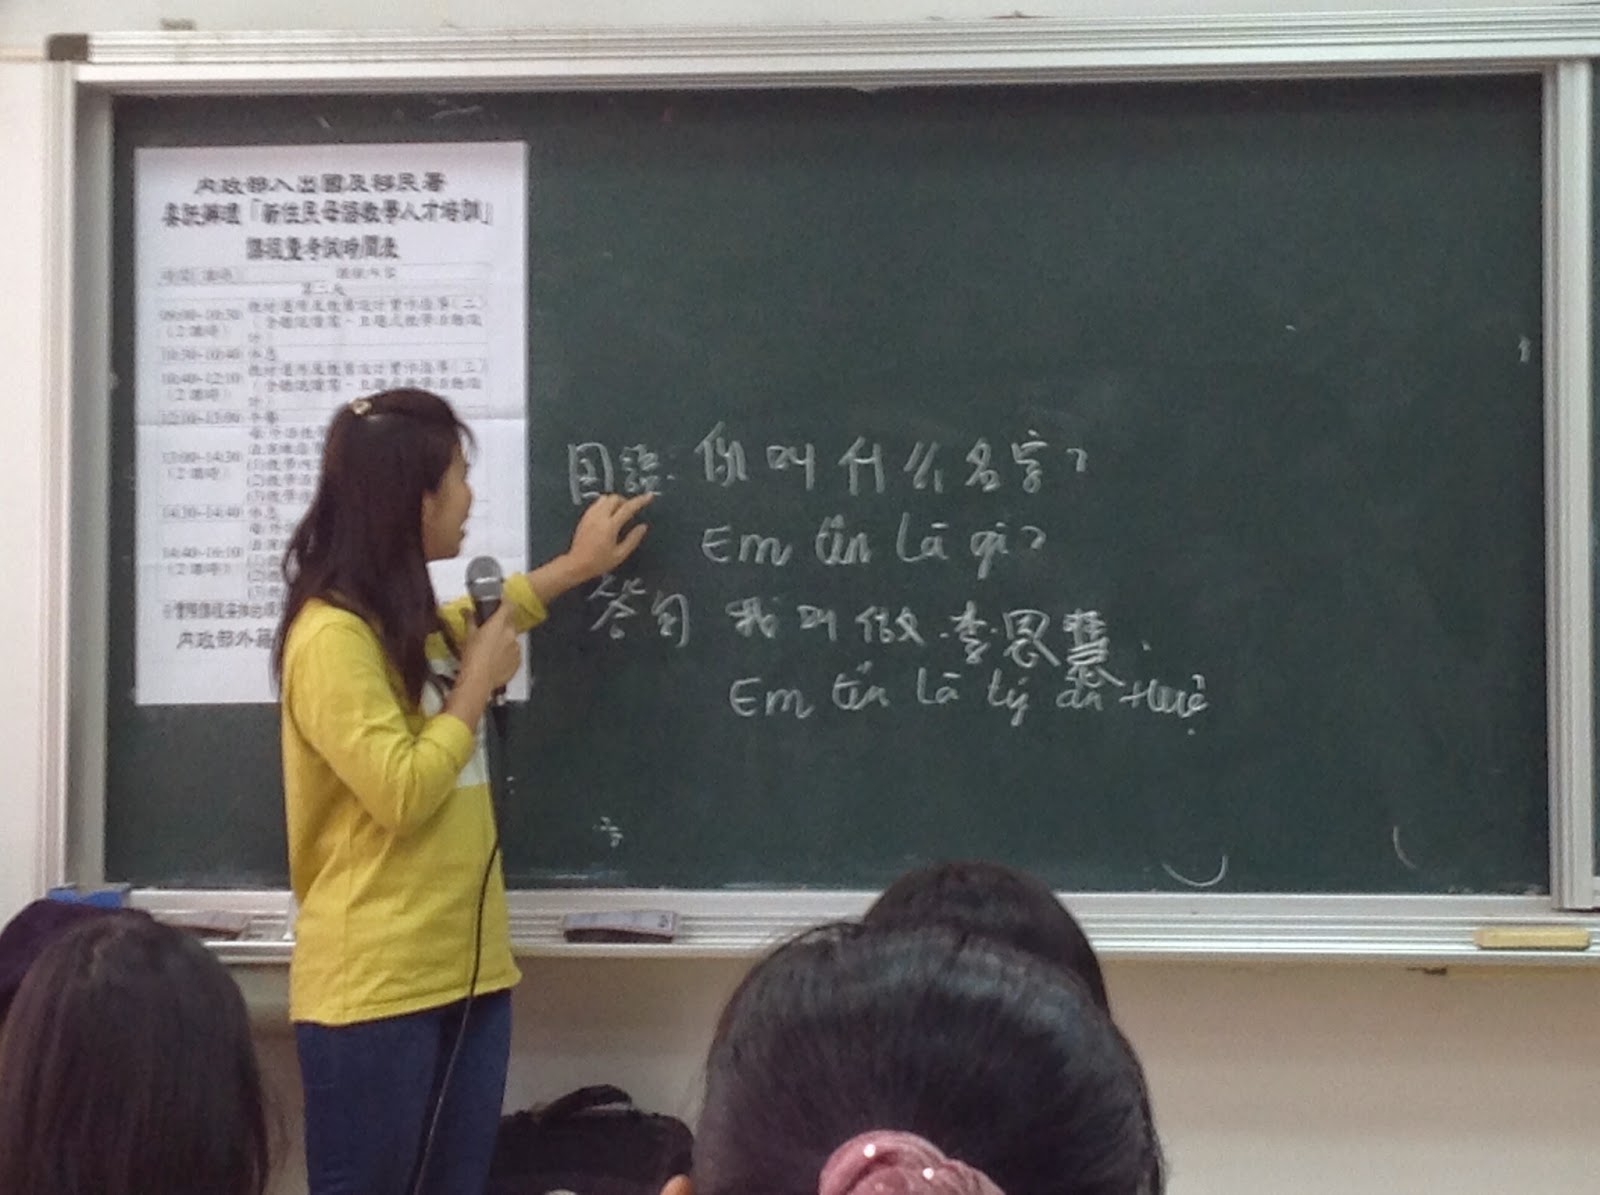 內政部入出國及移民署
委託辦理「新住民母語教學人才培訓」
課程暨考試時間表
時間(課時) 課程內容
第二天
09:00-10:30 教材運用及教案設計實作指導(二)
(2課時) (含聽說讀寫、主題式教學活動設
計)
10:30-10:40 休息
10:40-12:10 教材運用及教案設計實作指導(三)
(2課時) (含聽說讀寫、主題式教學活動設
計)
12:10-13:00 午餐
13:00-14:30
(2課時) (1)教學內
(2)教學
(3)教學
14:30-14:40 休息
14:40-16:10
(2課時) (1)
(2)
(3)
內政部外籍
国語: 你叫什么名字?
Em tên là gì?
答句 我叫做.李.恩慧.
Em tên là Lý ân Huệ